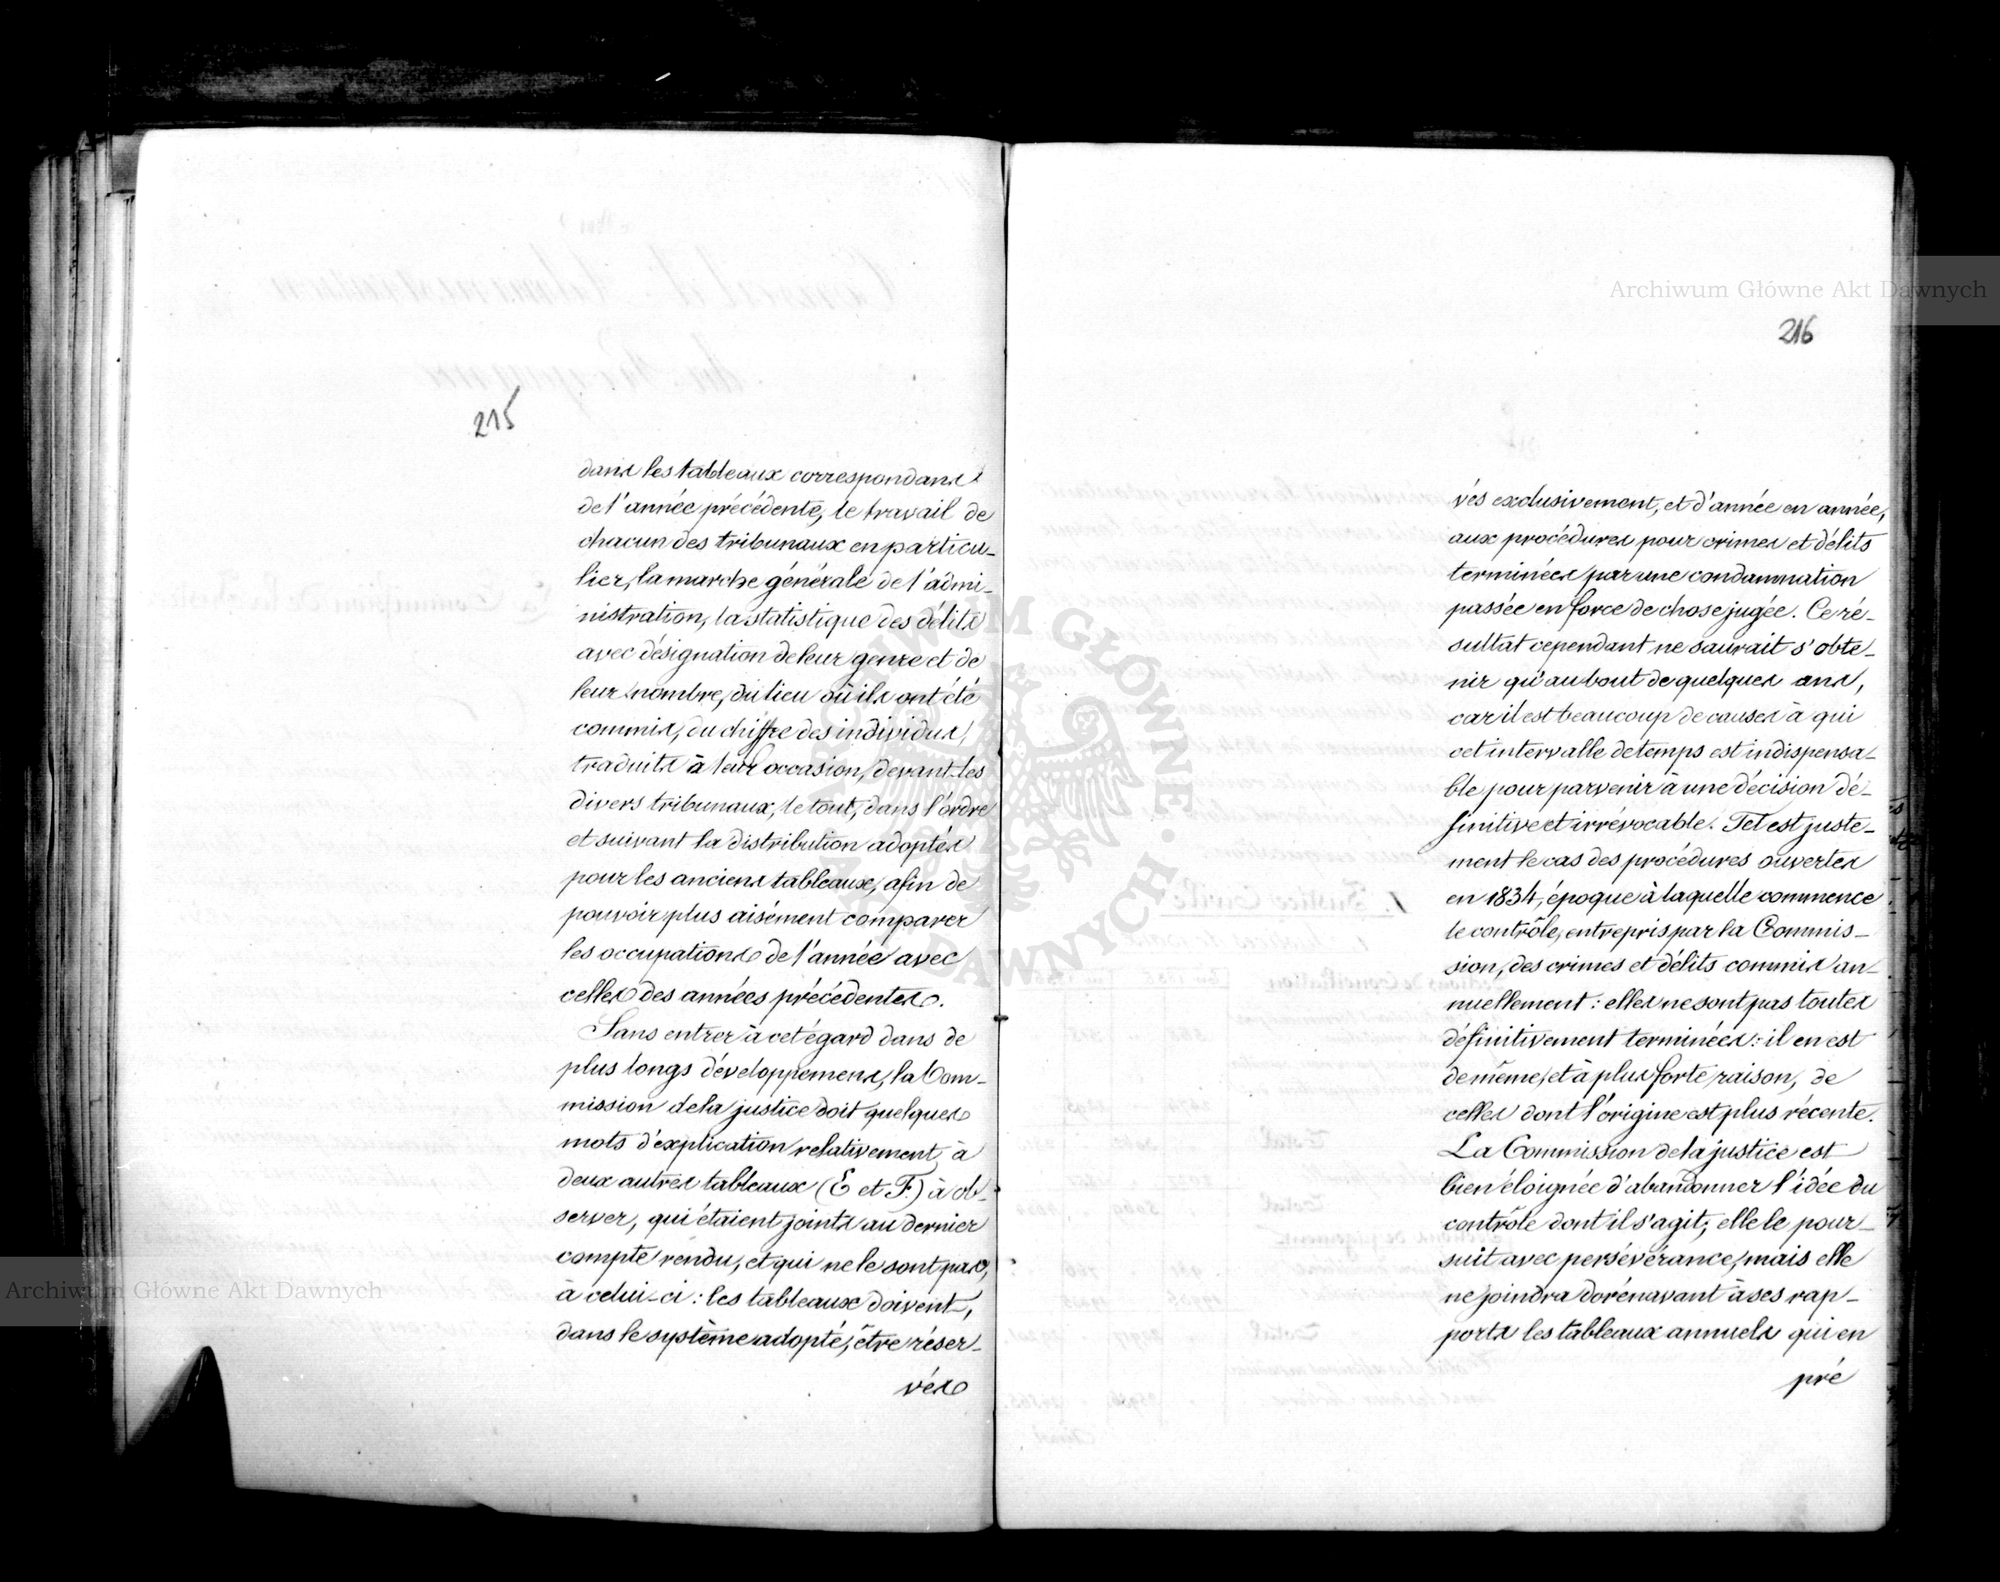 215
dans les tableaux correspondans
de l'année précédente, le travail de
chacun des tribunaux en particu-
lier, la marche générale de l'admi-
nistration, la statistique des délits
avec désignation de leur genre et de
leur nombre, du lieu où ils ont été
commis, du chiffre des individus,
traduits à leur occasion, devant les
divers tribunaux, le tout, dans l'ordre
et suivant la distribution adoptés
pour les anciens tableaux, afin de
pouvoir plus aisément comparer
les occupations de l'année avec
celles des années précédentes.
Sans entrer à cet égard dans de
plus longs développemens, la Com-
mission de la justice doit quelques
mots d'explication relativement à
deux autres tableaux (E et F.) à ob-
server, qui étaient joints au dernier
compte rendu, et qui ne le sont pas,
à celui-ci : les tableaux doivent,
dans le système adopté, être réser-
vés
Archiwum Główne Akt Dawnych
216
vés exclusivement, et d'année en année,
aux procédures pour crimes et délits
terminées par une condamnation
passée en force de chose jugée. Ce ré-
sultat cependant ne saurait s'obte-
nir qu'au bout de quelques ans,
car il est beaucoup de causes à qui
cet intervalle de temps est indispensa-
ble pour parvenir à une décision dé-
finitive et irrévocable. Tel est juste-
ment le cas des procédures ouvertes
en 1834, époque à laquelle commence
le contrôle, entrepris par la Commis-
sion, des crimes et délits commis an-
nuellement : elles ne sont pas toutes
définitivement terminées : il en est
de même, et à plus forte raison, de
celles dont l'origine est plus récente.
La Commission de la justice est
bien éloignée d'abandonner l'idée du
contrôle dont il s'agit, elle le pour-
suit avec persévérance, mais elle
ne joindra dorénavant à ses rap-
ports les tableaux annuels qui en
pré
Archiwum Główne Akt Dawnych
ARCHIWUM GŁÓWNE AKT DAWNYCH